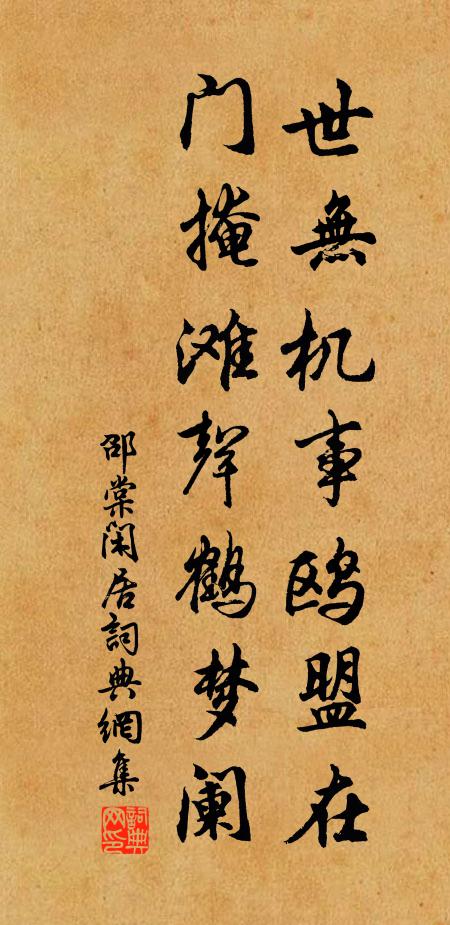 世無机事鸥盟在
门掩滩聲鹤梦阑
邵棠闲居詞典網集
詞典网印